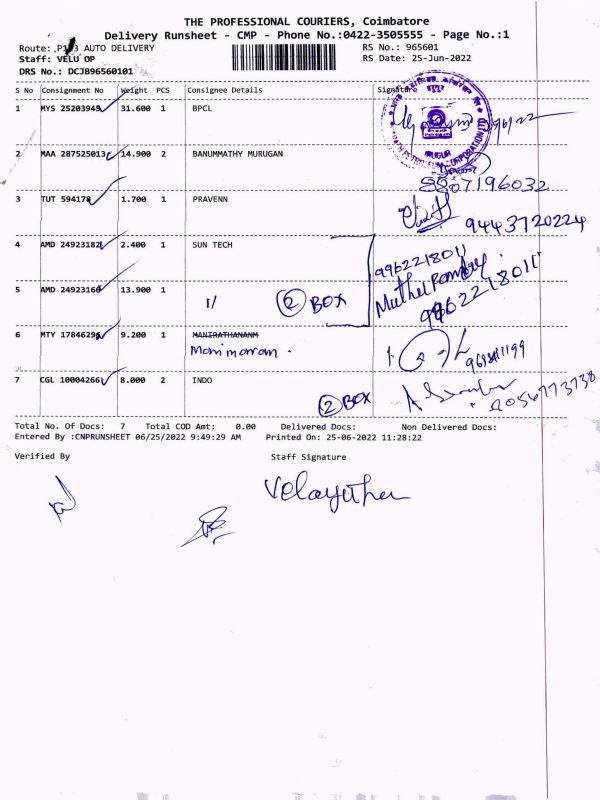 THE PROFESSIONAL COURIERS, Coimbatore
Delivery Runsheet - CMP - Phone No.:0422-3505555 - Page No.:1
Route: AUTO DELIVERY RS No.: 965601
Staff: VELU OP RS Date: 25-Jun-2022
DRS No.: DCJB96560101
S No Consignment No Weight PCS Consignee Details Signature
1 MYS 25203945 31.600 1 BPCL
2 MAA 287525013 14.900 2 BANUMMATHY MURUGAN
8807196032
3 TUT 594178 1.700 1 PRAVENN
9443720224
4 AMD 24923182 2.400 1 SUN TECH
9962218011
5 AMD 24923160 13.900 1 1/ 2 BOX
9962218011
6 MTY 17846296 9.200 1 MANIRATHANANM
Manimaran
7 CGL 10004266 8.000 2 INDO
2 BOX
Total No. Of Docs: 7 Total COD Amt: 0.00 Delivered Docs: Non Delivered Docs:
Entered By :CNPRUNSHEET 06/25/2022 9:49:29 AM Printed On: 25-06-2022 11:28:22
Verified By Staff Signature